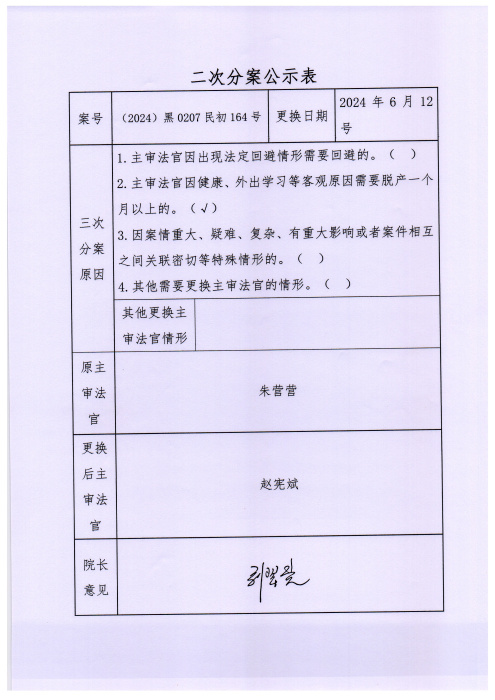 二次分案公示表
案号
（2024）黑0207民初164号
更换日期
2024年6月12
号
三次
分案
原因
1.主审法官因出现法定回避情形需要回避的。（ ）
2.主审法官因健康、外出学习等客观原因需要脱产一个
月以上的。（√）
3.因案情重大、疑难、复杂、有重大影响或者案件相互
之间关联密切等特殊情形的。（ ）
4.其他需要更换主审法官的情形。（ ）
其他更换主
审法官情形
原主
审法
官
朱营营
更换
后主
审法
官
赵宪斌
院长
意见